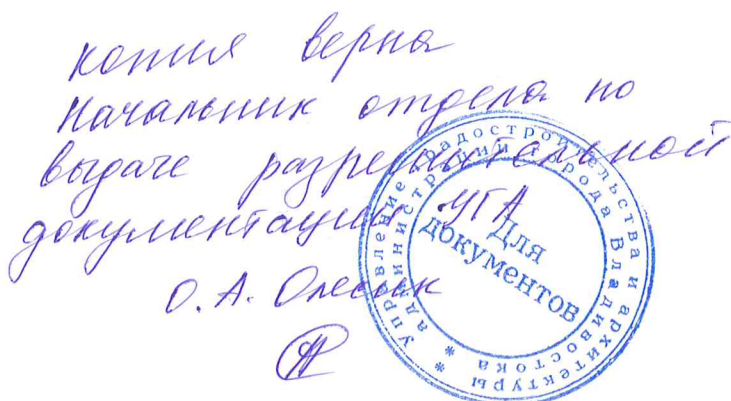 копия верна
Начальник отдела по
выдаче разрешительной
документации УГА
О. А. Олесик
Управление градостроительства и архитектуры
администрации города Владивостока
Для
документов